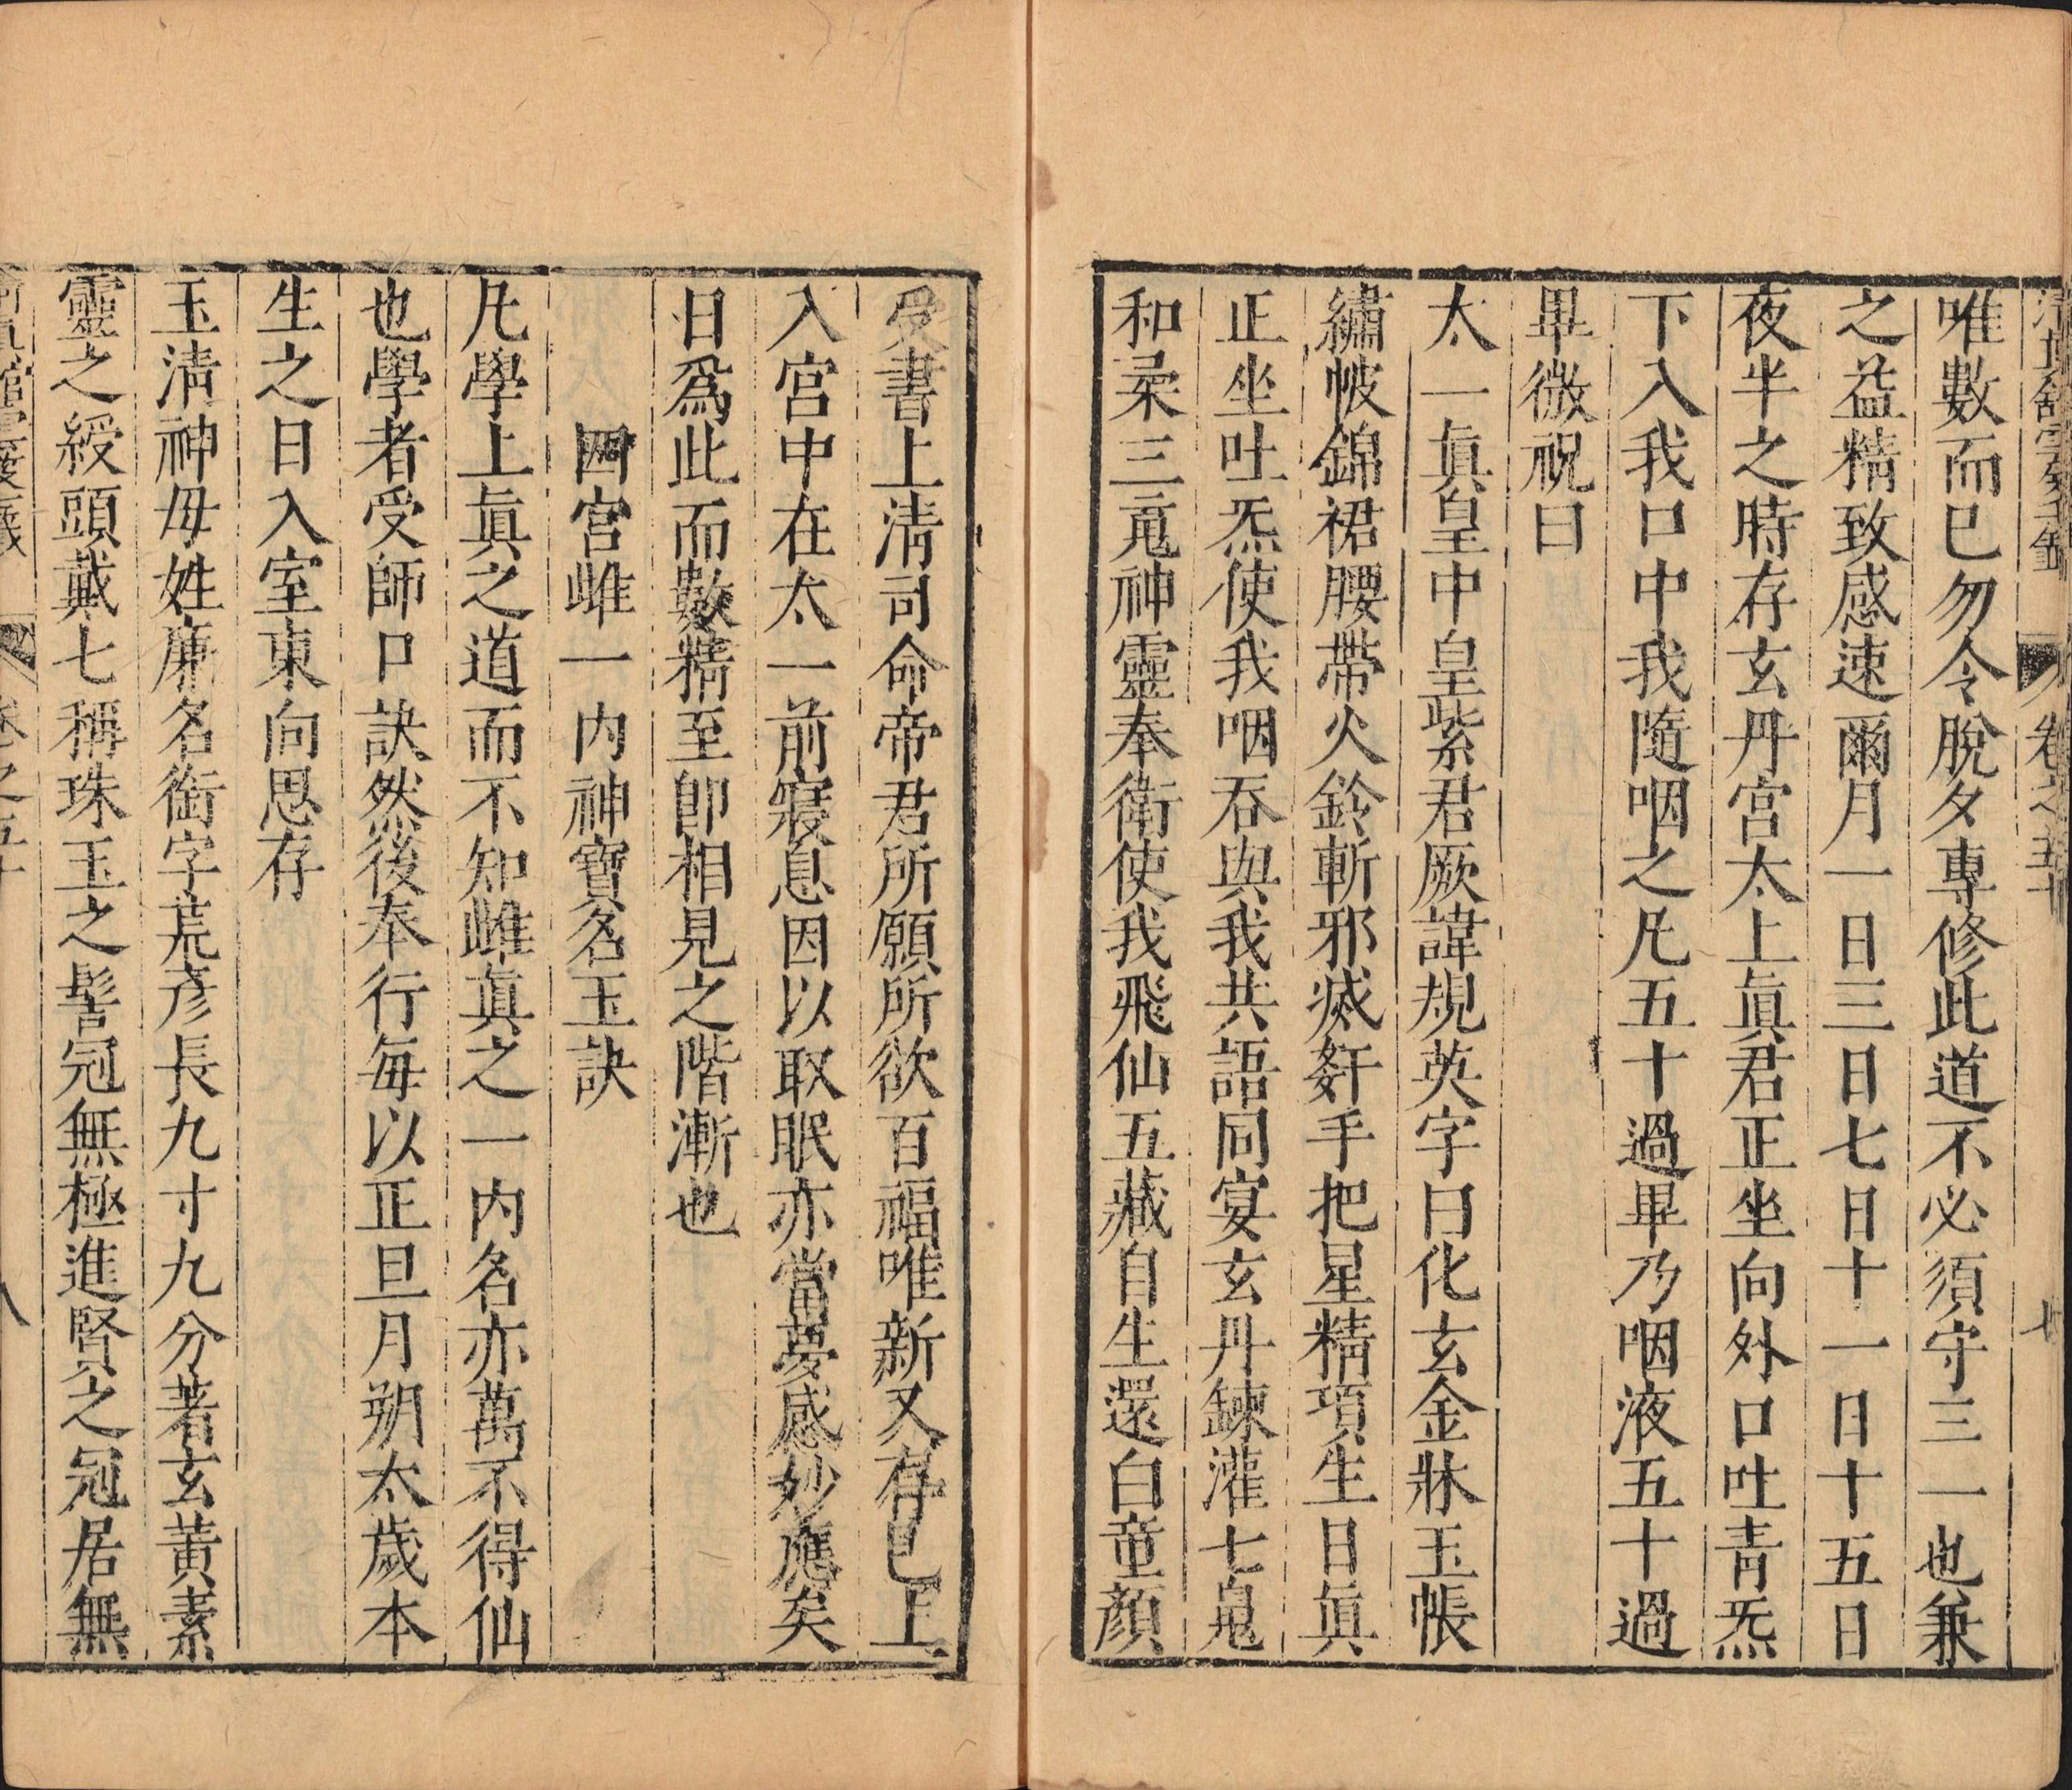 唯數而已勿令脫夕專修此道不必須守三一也兼
之益精致感速爾月一日三日七日十一日十五日
夜半之時存玄丹宮太上眞君正坐向外口吐青炁
下入我口中我隨咽之凡五十過畢乃咽液五十過
畢微祝曰
太一眞皇中皇紫君厥諱規英字曰化玄金牀玉帳
繡帔錦裙腰帶火鈴斬邪滅姧手把星精項生日眞
正坐吐炁使我咽吞與我共語同宴玄丹鍊灌七䰟
和柔三䰟神靈奉衛使我飛仙五藏自生還白童顏
受書上清司命帝君所願所欲百福唯新又存已上
入宮中在太一前寢息因以取眠亦當夢感妙應矣
日爲此而數精至卽相見之階漸也
四宮雌一内神寶名玉訣
凡學上眞之道而不知雌眞之一内名亦萬不得仙
也學者受師口訣然後奉行每以正旦月朔太歲本
生之日入室東向思存
玉清神母姓廉名銜字荒彥長九寸九分著玄黃素
靈之綬頭戴七稱珠玉之髻冠無極進賢之冠居無
卷之五十
八